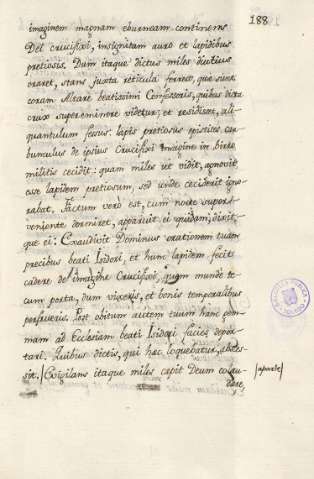 188
imaginem magnam eburneam continens
Dei crucifixi, insignitam auro et lapidibus
pretiosis. Dum itaque dictus miles diutius
oraret, stans juxta reticula ferrea, que sunt
coram Altare beatissimi Confessoris, quibus dicta
crux supereminere videtur; et residisse, ali-
quantulum fessus. lapis pretiosus epistites car-
bunculus de ipsius Crucifixi imagine in birreto
militis cecidit: quam miles ut vidit, agnovit
esse lapidem pretiosum, sed unde ceciderit igno-
rabat. Factum vero est, cum nocte super-
veniente dormiret, apparuit ei quidam, dixit-
que ei: Exaudivit Dominus orationem tuam
precibus beati Isidori, et hunc lapidem fecit
cadere de imagine Crucifixi, quem munde te-
cum porta, dum vixeris, et bonis temporalibus
perfrueris. Post obitum autem tuum hanc gem-
mam ad Ecclesiam beati Isidori facies depor-
tari. Quibus dictis, qui hæc loquebatur, abces-
sit. / Evigilans itaque miles cepit Deum colau-
dare,